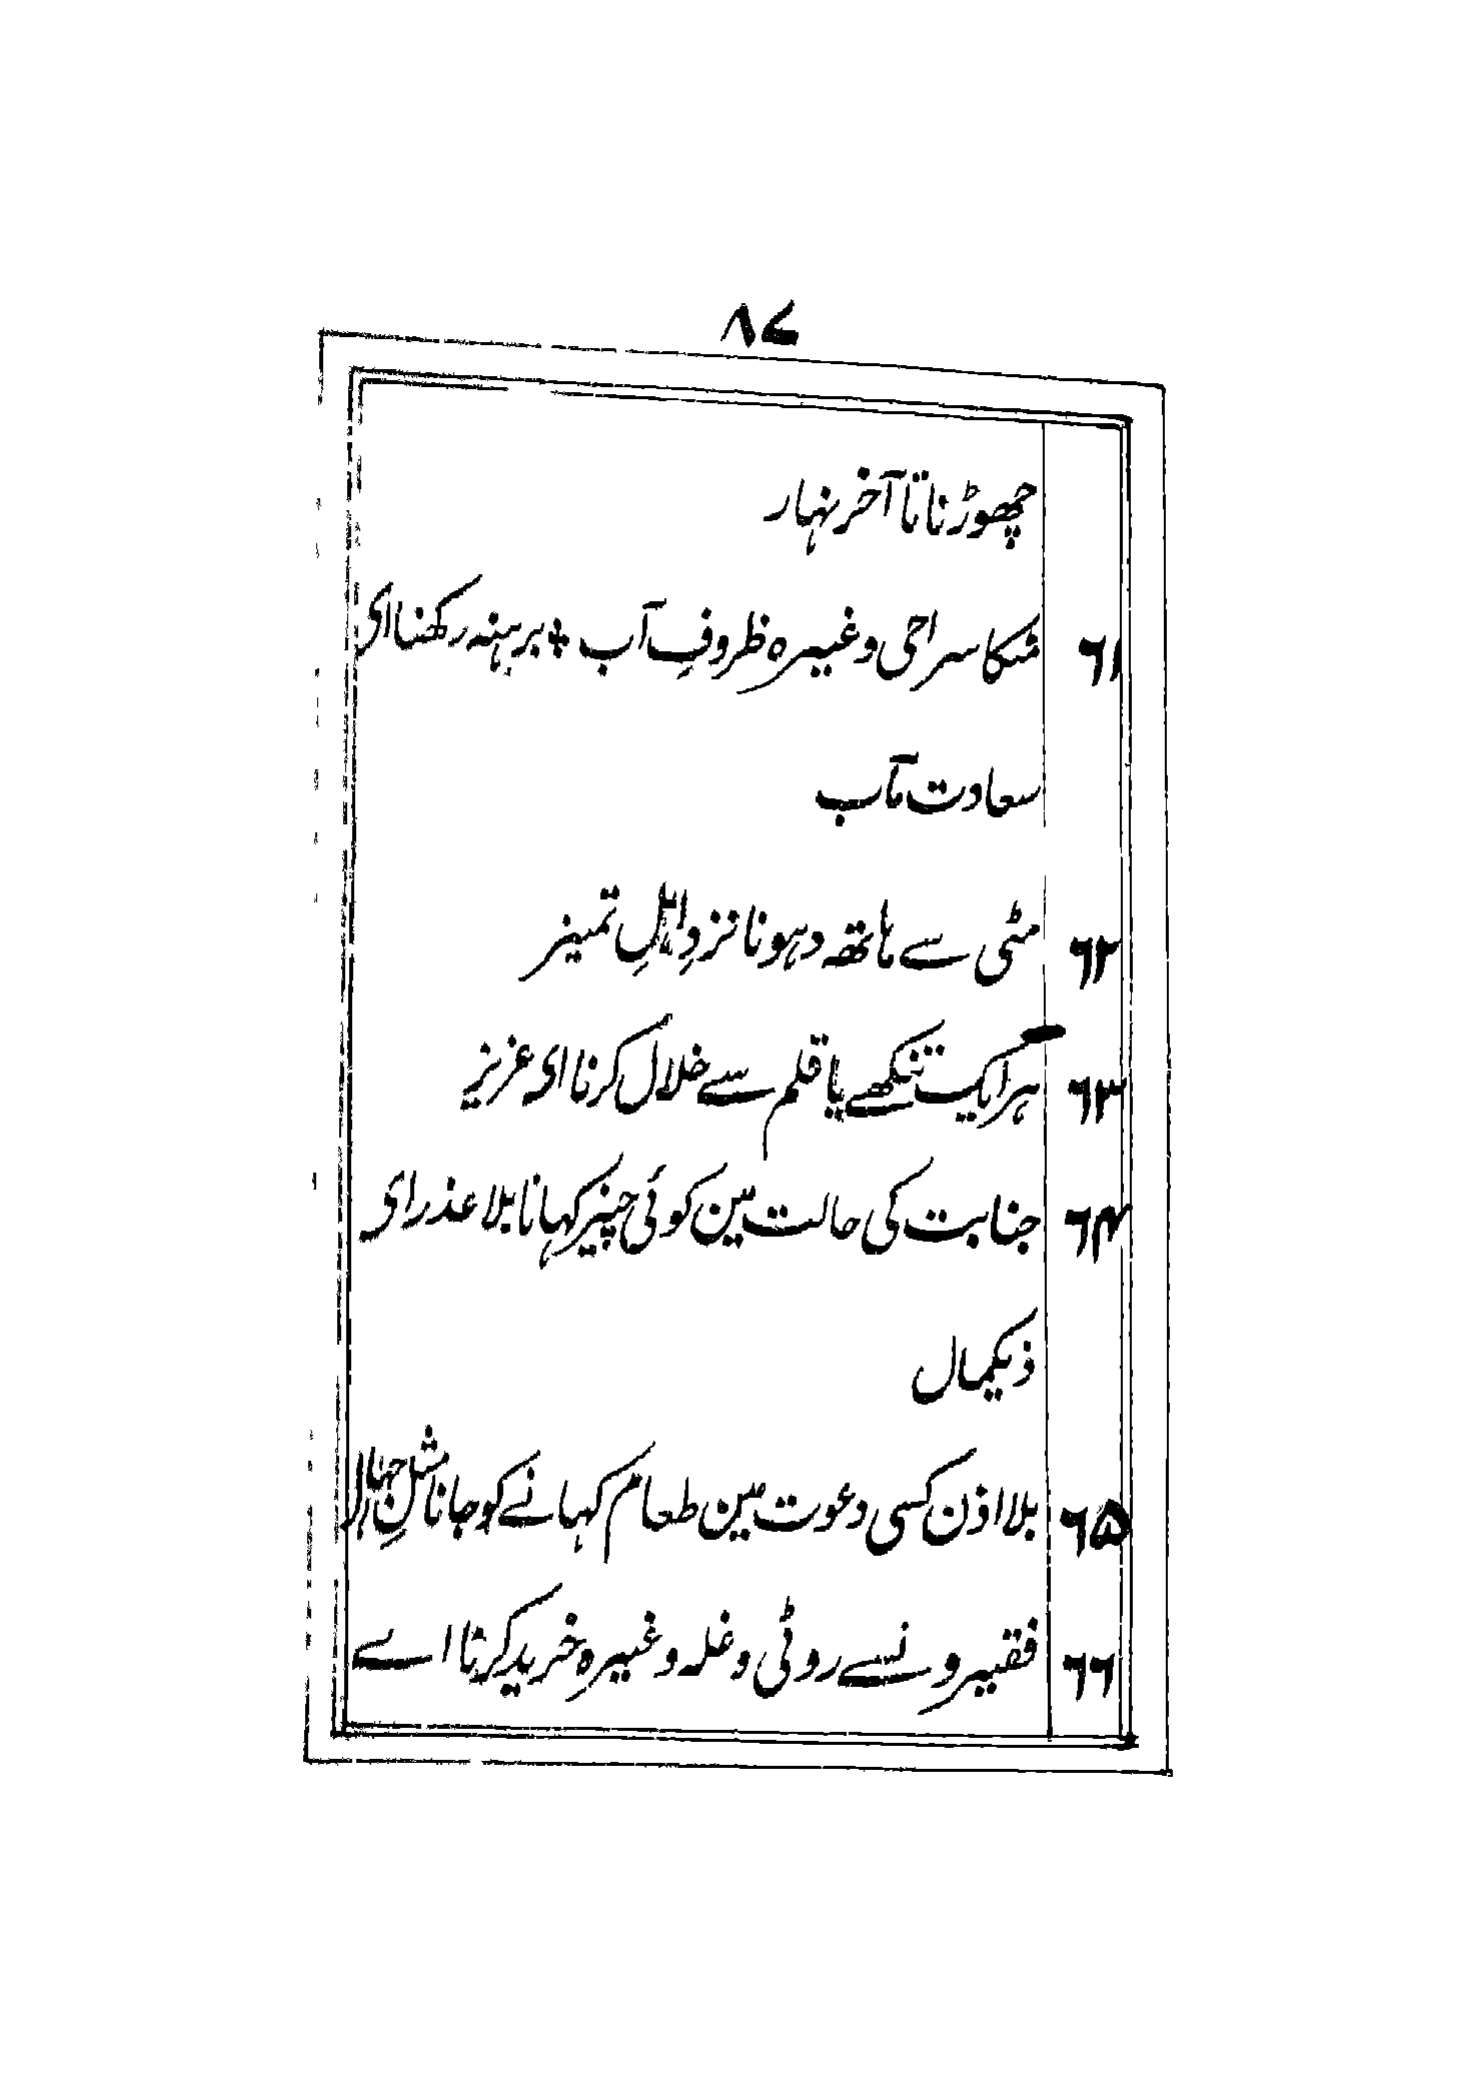 ٨٧
چھوڑنا تا آخر نہار
٦١ مٹکا سراحی وغیرہ ظروفِ آب * برہنہ رکھنا ای
سعادت مآب
٦٢ مٹی سے ہاتھہ دہونا نزدِ اہلِ تمیز
٦٣ ہر ایک تنکھے یا قلم سے خلال کرنا ای عزیز
٦۴ جنابت کی حالت مین کوئی چیز کہانا بلا عذر ای
ذیکمال
٦۵ بلا اذن کسی دعوت مین طعام کہانے کو جانا مثلِ جہال
٦٦ فقیرونسے روٹی وغلہ وغیرہ خرید کرنا اے